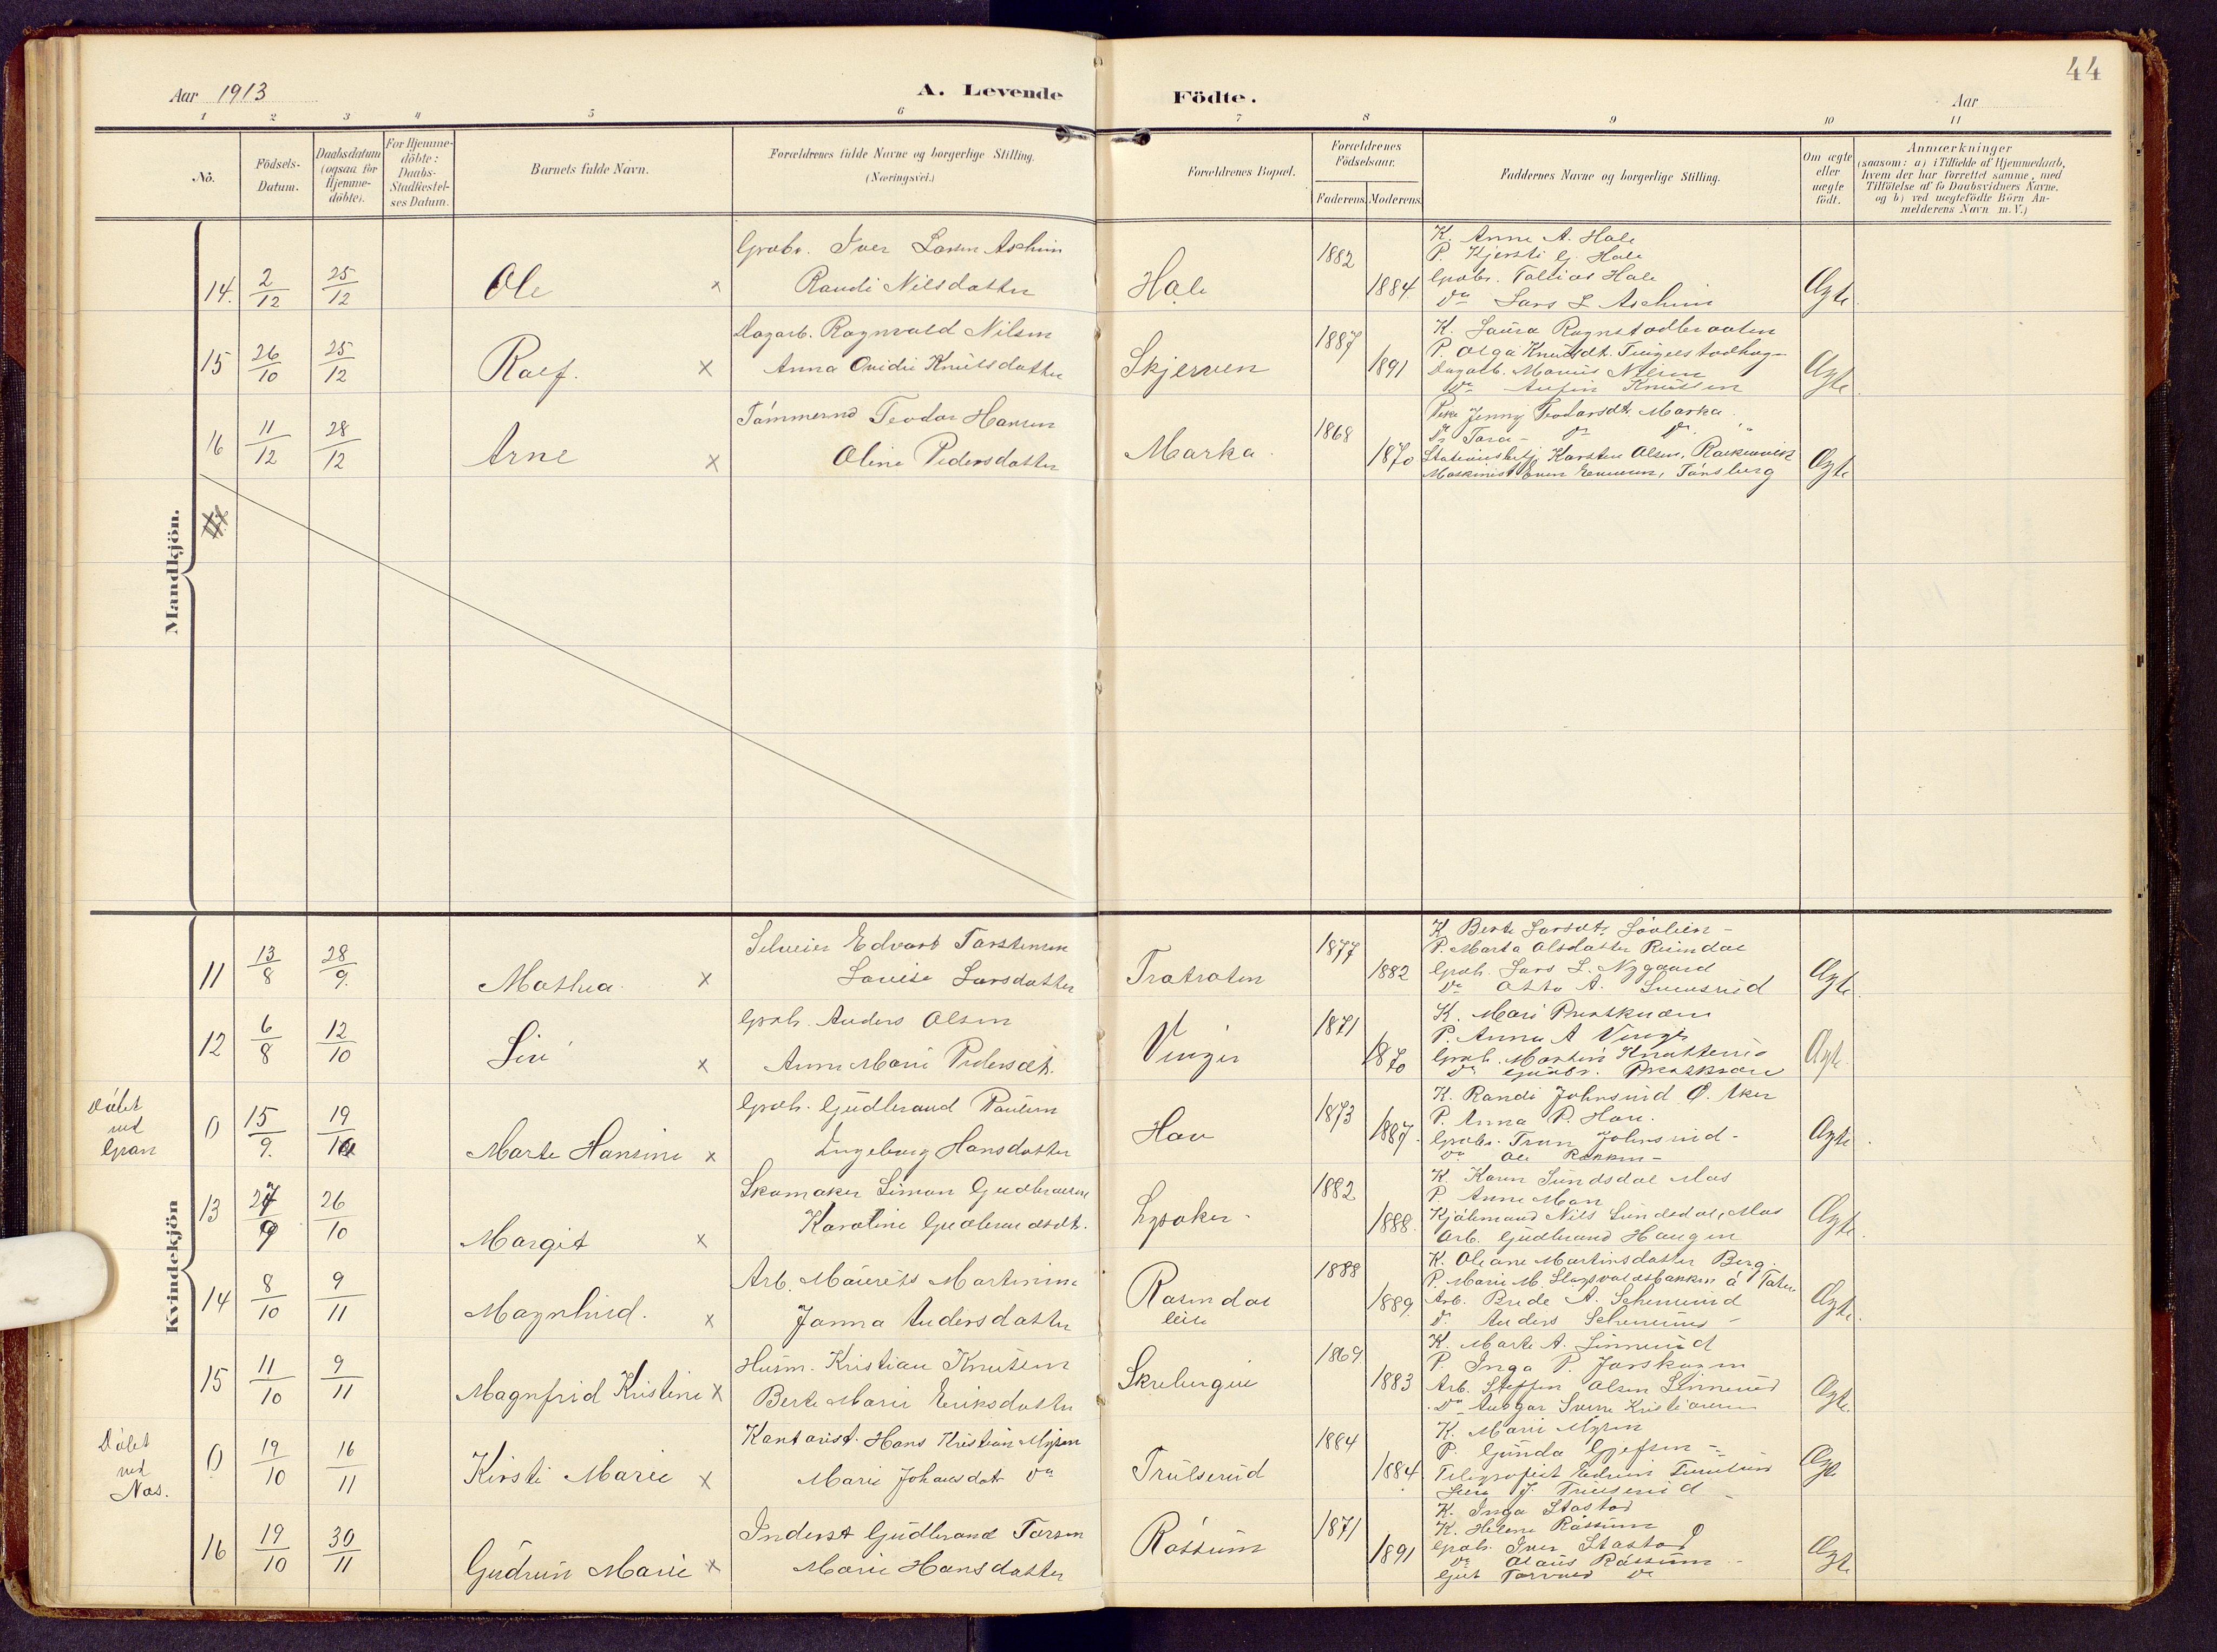 44
Aar 1913
A. Levende
Födte.
Aar
1 2 3 4 5 6 7 8 9 10 11
No.
Födsels-Datum.
Daabsdatum (ogsaa for Hjemme-döbte).
For Hjemme-döbte: Daabs-Stadfæstel-ses Datum.
Barnets fulde Navn.
Forældrenes fulde Navne og borgerlige Stilling.
(Næringsvei.)
Forældrenes Bopæl.
Forældrenes Födselsaar.
Faderens. Moderens.
Faddernes Navne og borgerlige Stilling.
Om ægte eller uægte födt.
Anmærkninger
(saasom: a) i Tilfælde af Hjemmedaab,
hvem der har forrettet samme, med
Tilföielse af to Daabsvidners Navne,
og b) ved uægtefödte Börn An-
melderens Navn m. V.)
Mandkjön.
14. 2/12 25/12 Ole x
Gaabr. Iver Larsen Aschim
Randi Nilsdatter
Hole
1882 1884
K. Anne A. Hole
P. Kjersti G. Hole
Gaabr. Tollias Hole
Do Lars L. Aschim
Ægte
15 26/10 25/12 Ralf. x
Dagarb. Ragnvald Nilsen
Anna Ovidie Knutsdatter
Skjerven
1887 1891
K. Laura Rognstadbraaten
P. Olga Knutsdt. Tingelstadhog-
Dagarb. Marius Nilsen
Do Knutsen
Ægte
16 11/12 28/12 Arne x
Tömmermd Teodor Hansen
Oline Pedersdatter
Marka
1868 1870
Pike Jenny Teodorsdt. Marka
Do Tora - Do Do
Stationsbetj. Karsten Olsen,
Maskinist Even Evensen, Tönsberg
Ægte
Kvindekjön
11 13/8 28/9. Mathea. x
Edvart Torstensen
Lovise Larsdatter
Tratraten
1877 1882
K. Berte Larsdt. Lövlien -
P. Marta Olsdatter
Gaab. Lars L. Nygaard
Do Otto A.
Ægte
12 6/8 12/10 Siri x
Gaab. Anders Olsen
Anne Marie Pedersdt.
Vinger
1871 1870
K. Mari
P. Anna A Vinger
Gaab. Martin
Do Gudbr.
Ægte.
Döbt ved Gran
0 15/9. 19/10 Marte Hansine x
Gaab. Gudbrand Paulsen
Ingeborg Hansdatter
Hov
1873 1887.
K. Randi Johnsrud Ö. Aker
P. Anna P. Hov.
Gaabr. Tron Johnsrud -
Do Ole
Ægte
13 27/9 26/10 Margit x
Skomaker Simon Gudbrandsen
Karoline Gudbrandsdt.
Lysaker -
1882 1888.
K. Karen Sundsdal Mos
P. Anne Moen
Kjöbmand Nils Sundsdal, Mos
Arb. Gudbrand Haugen
Ægte
14 8/10 9/11 Magnhild. x
Arb. Maurits Martinsen
Janna Andersdatter
Rosendal
eie
1888 1889.
K. Oleane Martinsdatter Berg.
P. Marie M.
Arb. Brede A.
Do Anders
Ægte
15 11/10 9/11 Magnfrid Kristine x
Husm. Kristian Knutsen
Berte Marie Eriksdatter
Skrebergeie
1869 1883
K. Marte A. Linnerud
P. Inga P.
Arb. Steffen Olsen Linnerud
Do Ansgar Kristiansen
Ægte.
Döbt ved Næs.
0 19/10 16/11 Kirsti Marie x
Kontorist. Hans Kristian Myren
Marie Johansdat Do
Trulserud
1884 1884
K. Marie Myren
P. Gunda -
Telegrafist
J. Trulserud
Ægte
16 19/10 30/11 Gudrun Marie x
Inderst Gudbrand Torsen
Marie Hansdatter
Rössum
1871 1891
K. Inga Stastad
K. Helene Rössum
Gaab. Iver Stastad
Do Olaus Rössum -
Gut Torvald Do
Ægte